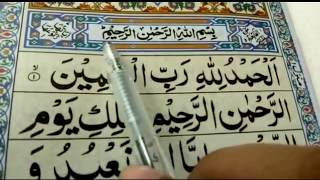 بِسْمِ اللهِ الرَّحْمٰنِ الرَّحِيْمِ
اَلْحَمْدُ لِلّٰهِ رَبِّ الْعٰلَمِيْنَ ۱
الرَّحْمٰنِ الرَّحِيْمِ مٰلِكِ يَوْمِ
نَعْبُدُ وَ